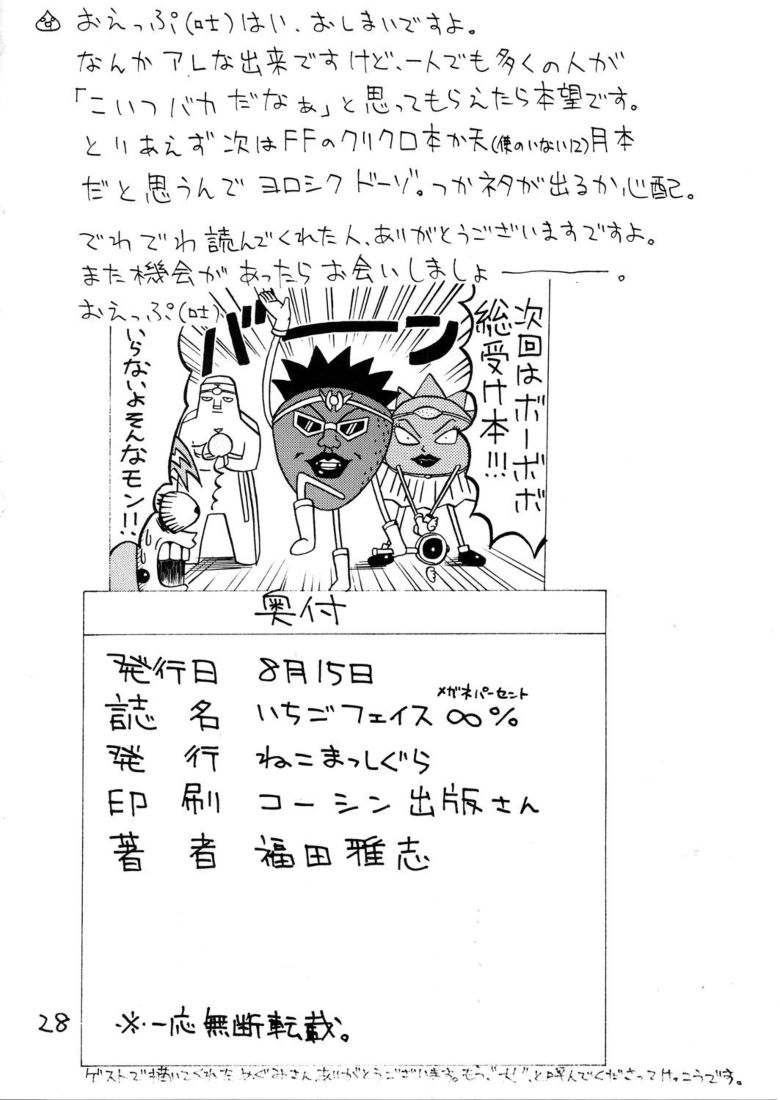 おえっぷ(吐)はい、おしまいですよ。
なんかアレな出来ですけど、一人でも多くの人が
「こいつバカだなぁ」と思ってもらえたら本望です。
とりあえず次はFFのクリクロ本か天(使のいない12)月本
だと思うんでヨロシクドーゾ。つかネタが出るか心配。
でわでわ読んでくれた人、ありがとうございますですよ。
また機会があったらお会いしましょーーー。
おえっぷ(吐)
バーン
次回はボーボボ
総受け本!!!
いらないよそんなモン!!
奥付
発行日 8月15日
メガネパーセント
誌名 いちごフェイス∞%
発行 ねこまっしぐら
印刷 コーシン出版さん
著者 福田雅志
※一応無断転載。
28
ゲストで描いてくれためぐみさん、ありがとうございます。もう、と呼んでくださってけっこうです。